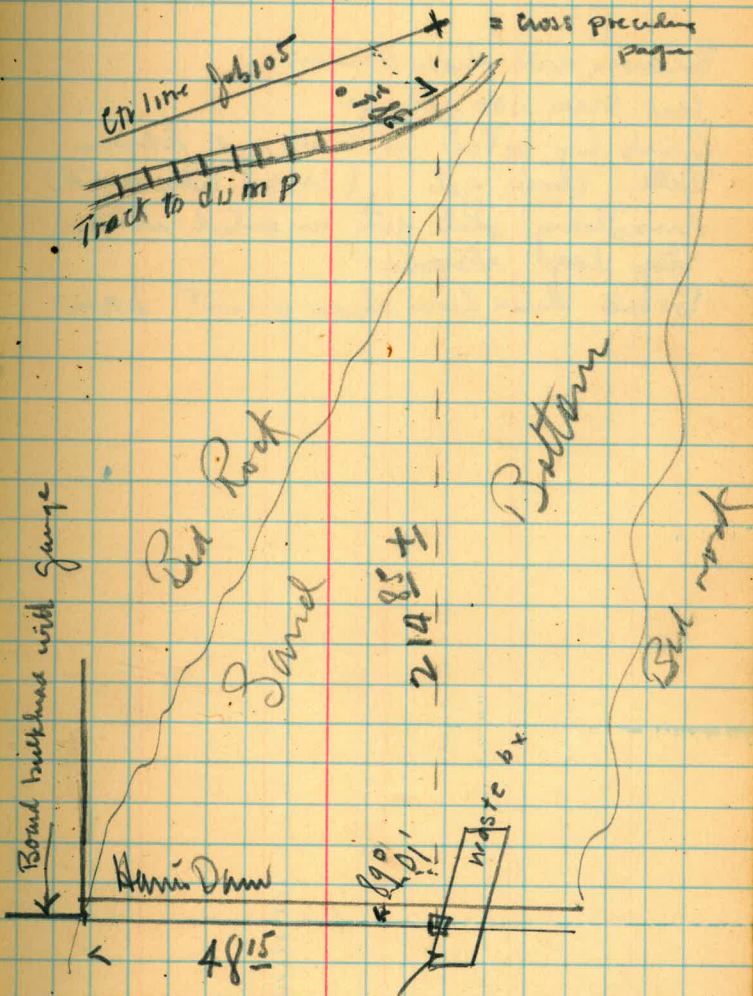 = Cross preceding
page
Ctr line Job 105
Track to dump
Bed Rock
Sand
Bottom
Bed rock
214 85
Board bulkhead with gauge
Waste bx
Harris Dam
48 15